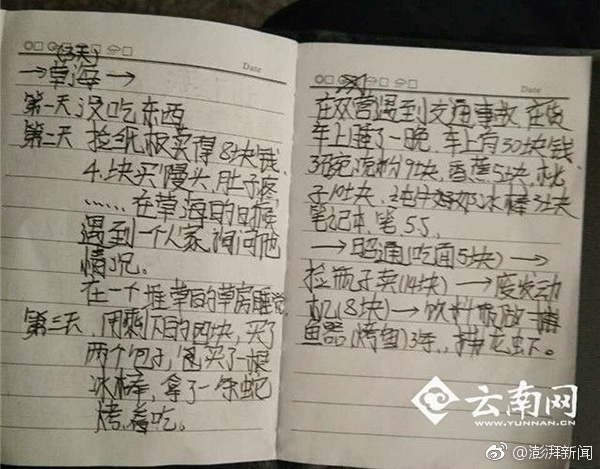 (3天)
Date
→草海→
第一天 没吃东西
第二天 捡纸板卖得8块钱
4块买馒头,肚子疼,
……在草海的日 
遇到一个人家,询问他
情况。
在一个堆草的草房睡觉
第三天,用剩下的四块,买了
两个包子,包买了一根
冰棒,拿了一条蛇
烤着吃。
Date
在双营遇到交通事故,在货
车上睡了一晚,车上有30块钱.
3碗凉粉9块,香蕉5块,桃
子10块,纯牛好奶冰棒3块
笔记本,笔,5.5,
→昭通(吃面5块)→
捡瓶子卖(14块)→废发动
机(8块)→饮料瓶做捕
鱼器(烤鱼)3条,捞花虾。
云南网
WWW.YUNNAN.CN
@澎湃新闻